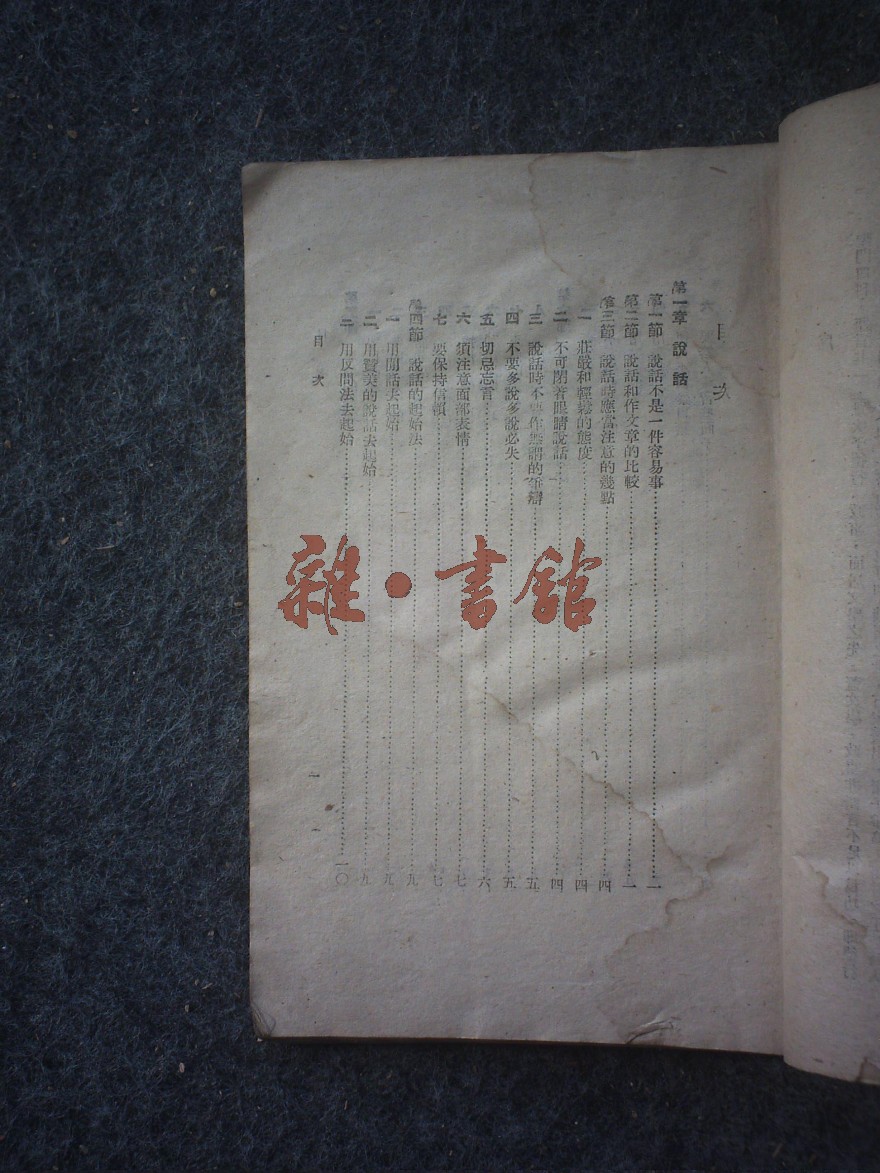 目次
第一章 說話
第一節 說話不是一件容易事……一
第二節 說話和作文章的比較……一
第三節 說話時應當注意的幾點……四
一 莊嚴和輕鬆的態度……四
二 不可閉著眼睛說話……四
三 說話時不要作無謂的爭辯……五
四 不要多說多說必失……五
五 切忌忘言……六
六 須注意面部表情……七
七 要保持信頼……七
第四節 說話的起始法……九
一 用閒話去起始……九
二 用贊美的說話去起始……九
三 用反問法去起始……一〇
目次
一
雜·書館